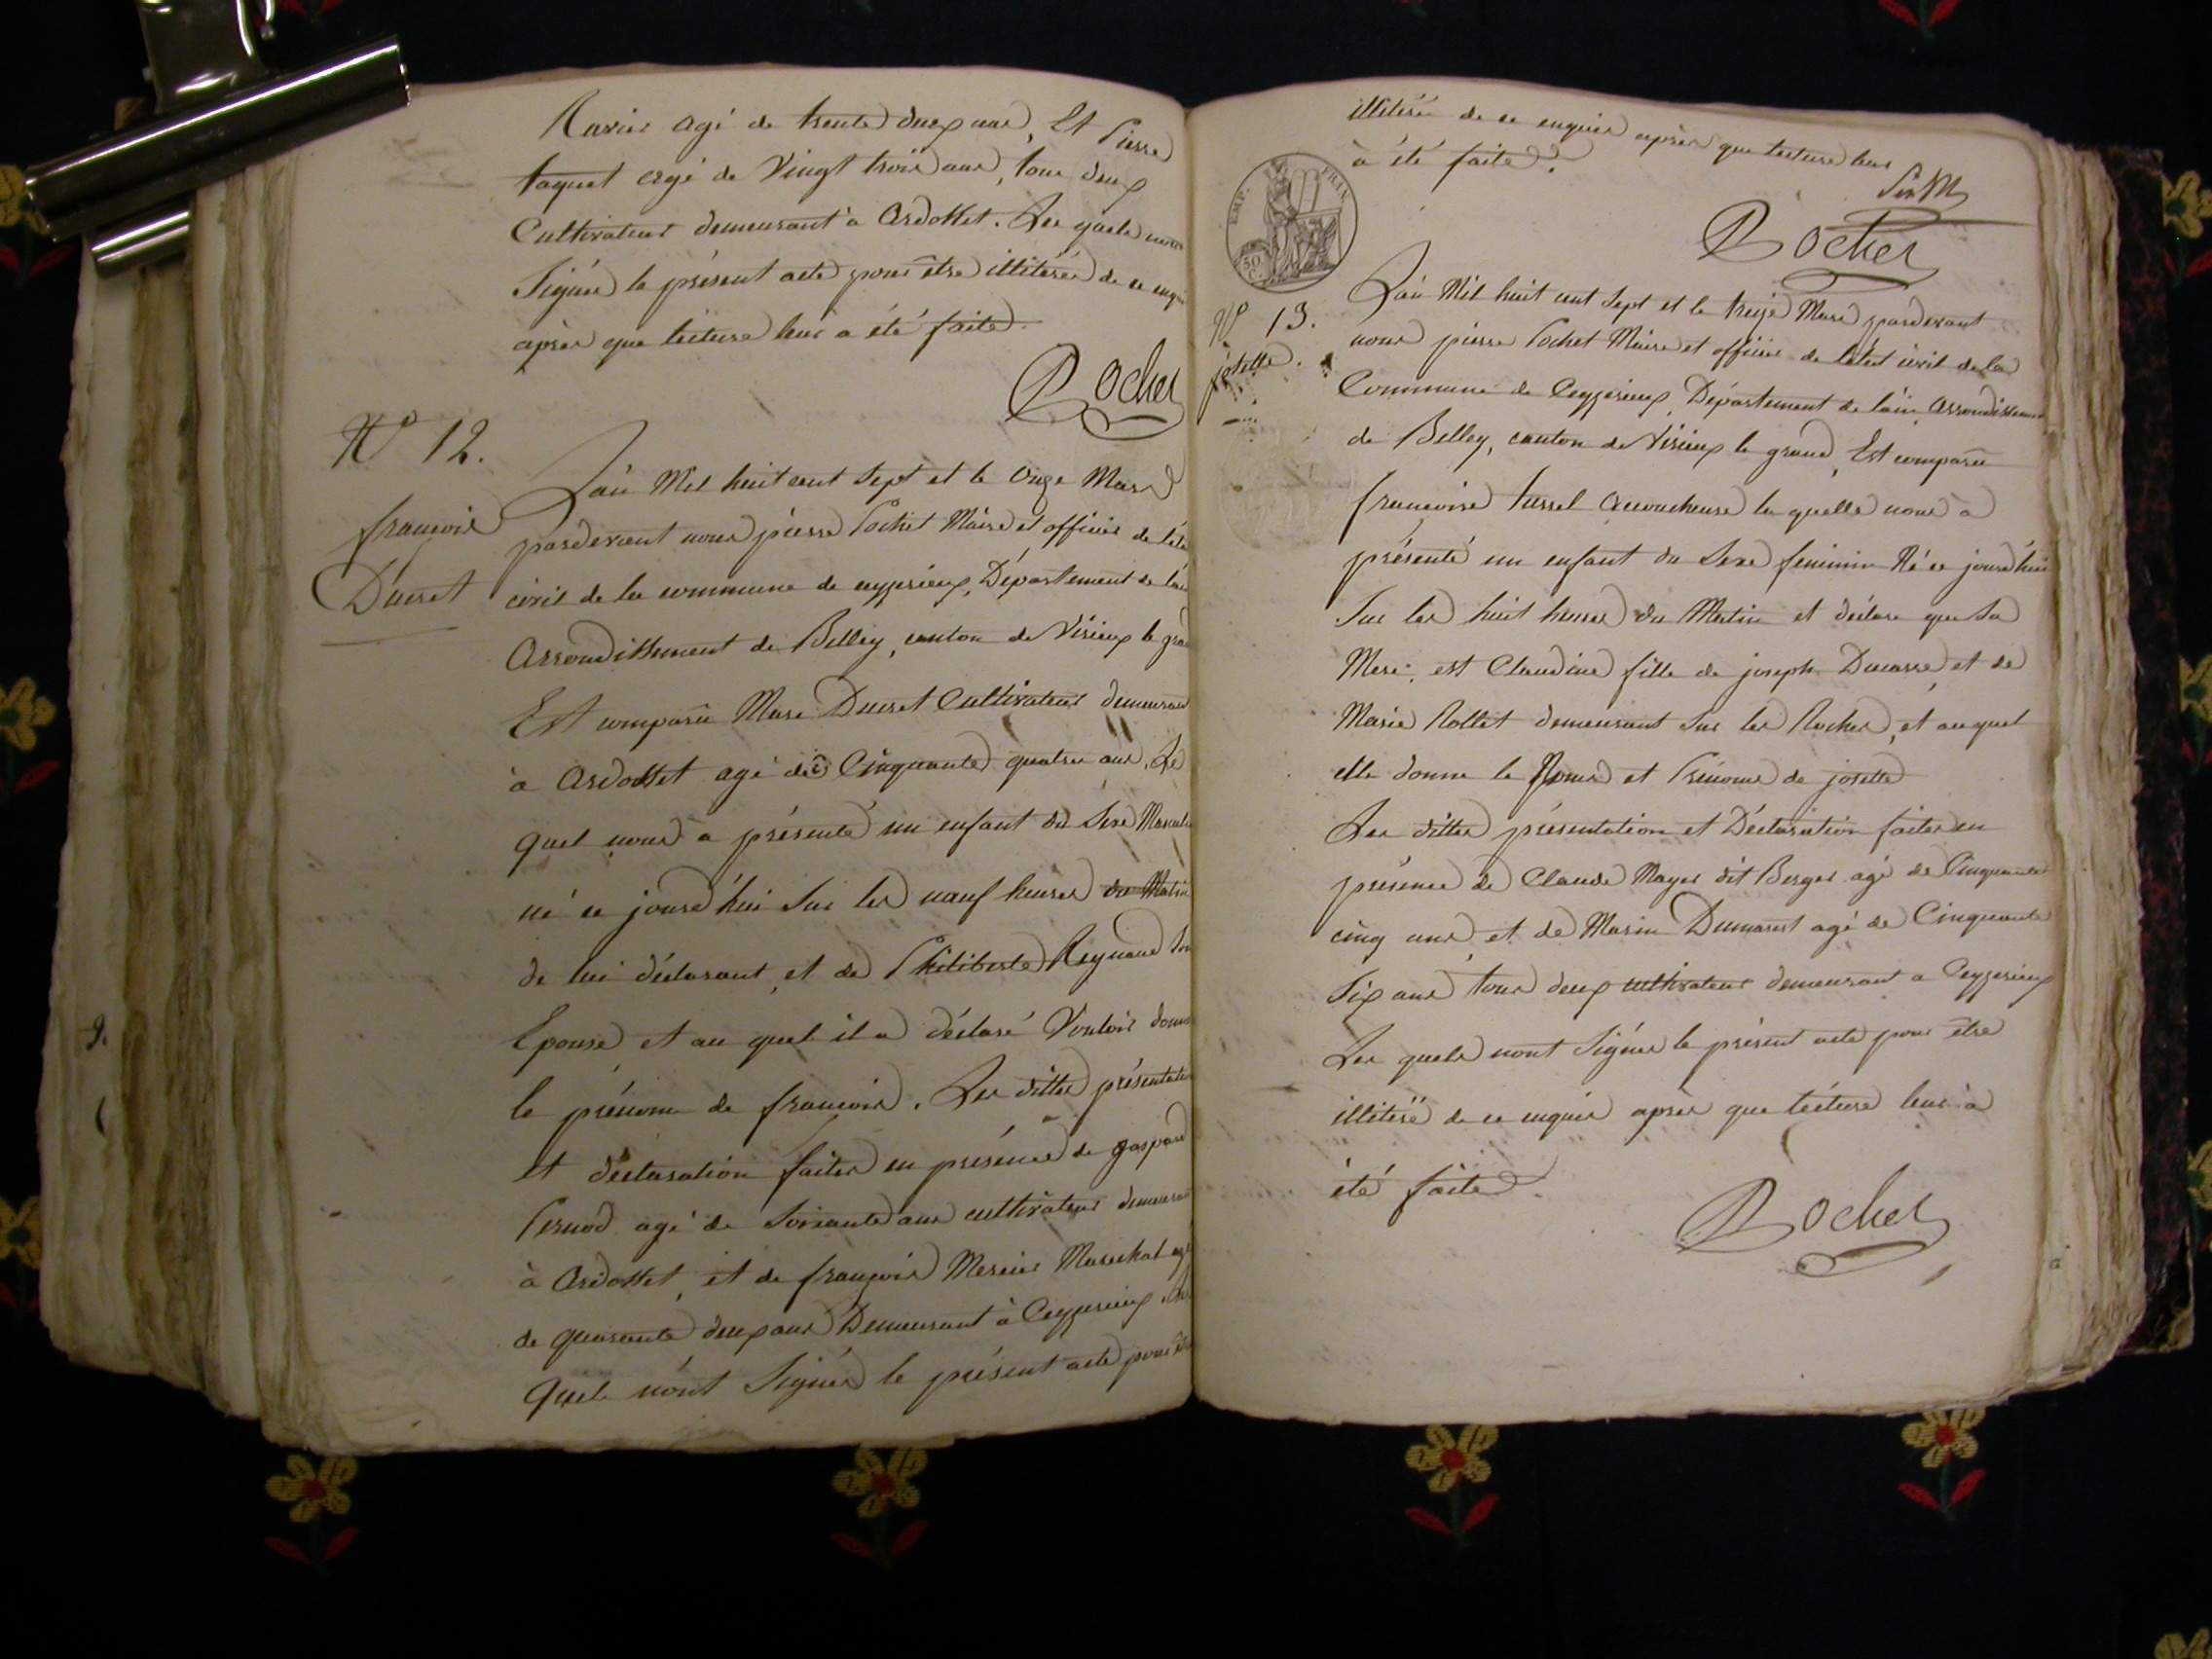 agé de trente deux ans, Et Pierre
taquet agé de Vingt trois ans, tous deux
Cultivateurs demeurant à Ardosset. Les quels nont
Signés le présent acte pour être illitérés de ce enquis
après que lecture leur a été faite.
Pochet
N° 12.
françois
Ducret
L'an Mil huit cent Sept et le Onze Mars
pardevant nous pierre Pochet Maire et officier de l'état
civil de la commune de ceyzerieux, Département de l'ain
Arrondissement de Belley, canton de Virieux le grand
Est comparu Marc Ducret Cultivateur demeurant
à Ardosset agé de Cinquante quatre ans, Le
quel nous a présenté un enfant du Sexe Masculin
né ce jourd'hui Sur les neuf heures du Matin
de lui déclarant, et de Philiberte Reynaud Son
Epouse, et au quel il a déclaré Vouloir donner
le prénom de françois. Les dittes présentation
et déclaration faites en présence de gaspard
Pernod agé de Soixante ans cultivateur demeurant
à Ardosset, et de françois Mercier Marechal agé
de quarante deux ans Demeurant à Ceyzerieux. Les
Quels n'ont Signés le présent acte pour être
illitérés de ce enquis après que lecture leur
à été faite.
Pochet
EMP. FRAN.
50 C.
N° 13.
josette.
L'an Mil huit cent Sept et le treize Mars pardevant
nous pierre Pochet Maire et officier de l'état civil de la
Commune de Ceyzerieux, Département de l'ain, Arrondissement
de Belley, canton de Virieux le grand, Est comparu
françoise turrel Accoucheuse la quelle nous à
présenté un enfant du Sexe feminin Né ce jourd'hui
Sur les huit heures du Matin et déclare que Sa
Mere, est Claudine fille de joseph Ducarre, et de
Marie Rollet demeurant Sur les Roches, et auquel
elle donne le Noms et Prénoms de josette
Les dittes présentation et Déclaration faites en
présence de Claude Mayer dit Berger agé de Cinquante
cinq ans, et de Marin Dumarest agé de Cinquante
Six ans tous deux cultivateur demeurant a Ceyzerieux
Les quels nont Signés le présent acte pour être
illitéré de ce enquis après que lecture leur à
été faite.
Pochet